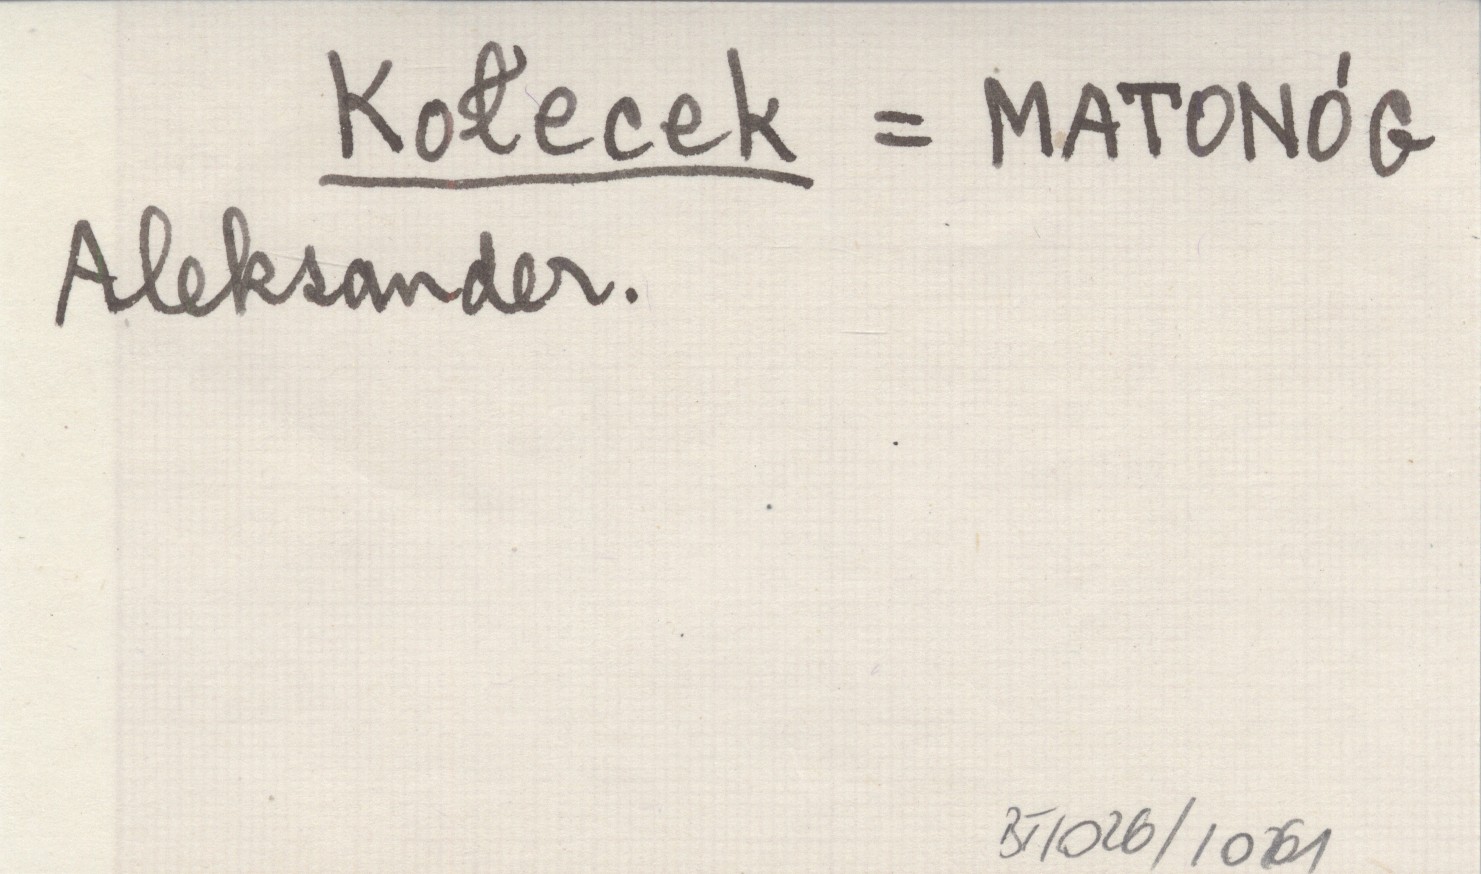 Kołecek = MATONÓG
Aleksander.
BT/1026/1061